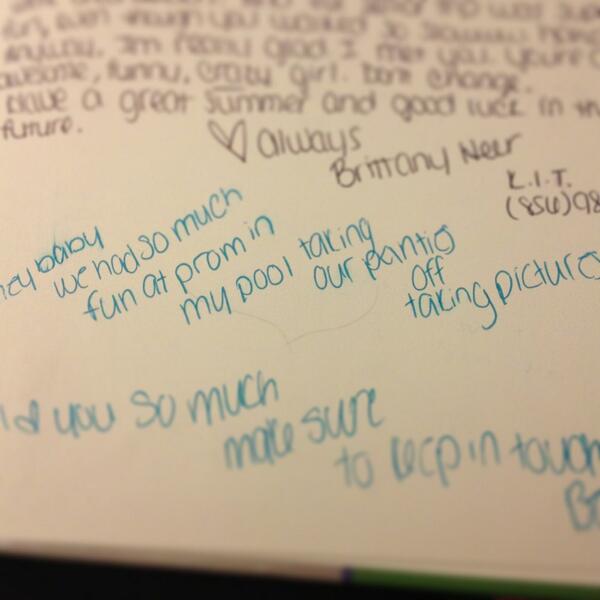 fun, even though you wanted so
anyway. I'm really glad I met you. You're
awesome, funny, crazy girl. Don't change.
Have a great summer and good luck in th
future.
♡ always
Brittany Neer
K.I.T.
(856)98
hey baby
we had so much
fun at prom in
my pool taking
our pantis
off
taking pictures
you so much
make sure
to keep in touch